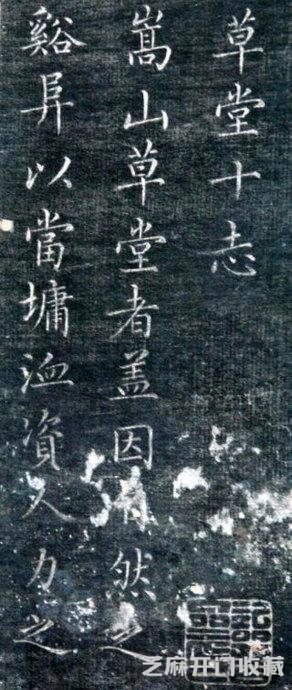 草堂十志
嵩山草堂者盖因自然之
谿阜以當墉洫資人力之
芝麻开门收藏